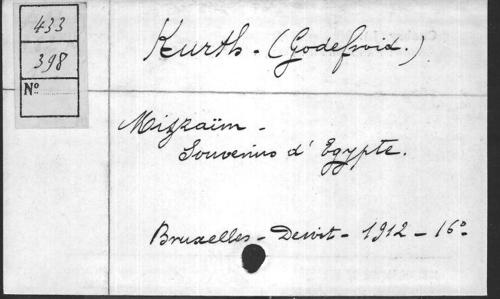 433
398
Nº
Kurth. (Godefroid.)
Mizraïm.
Souvenirs d'Egypte.
Bruxelles - Dewit - 1912 - 16º